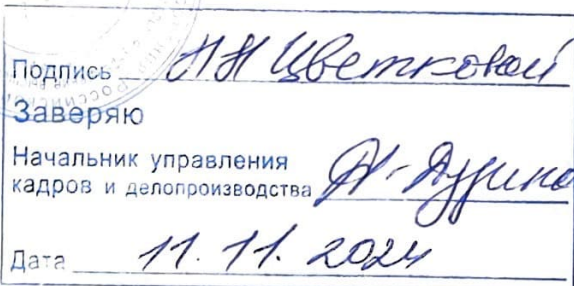 Подпись Н Н Цветковой
Заверяю
Начальник управления
кадров и делопроизводства
Дата 11.11.2024